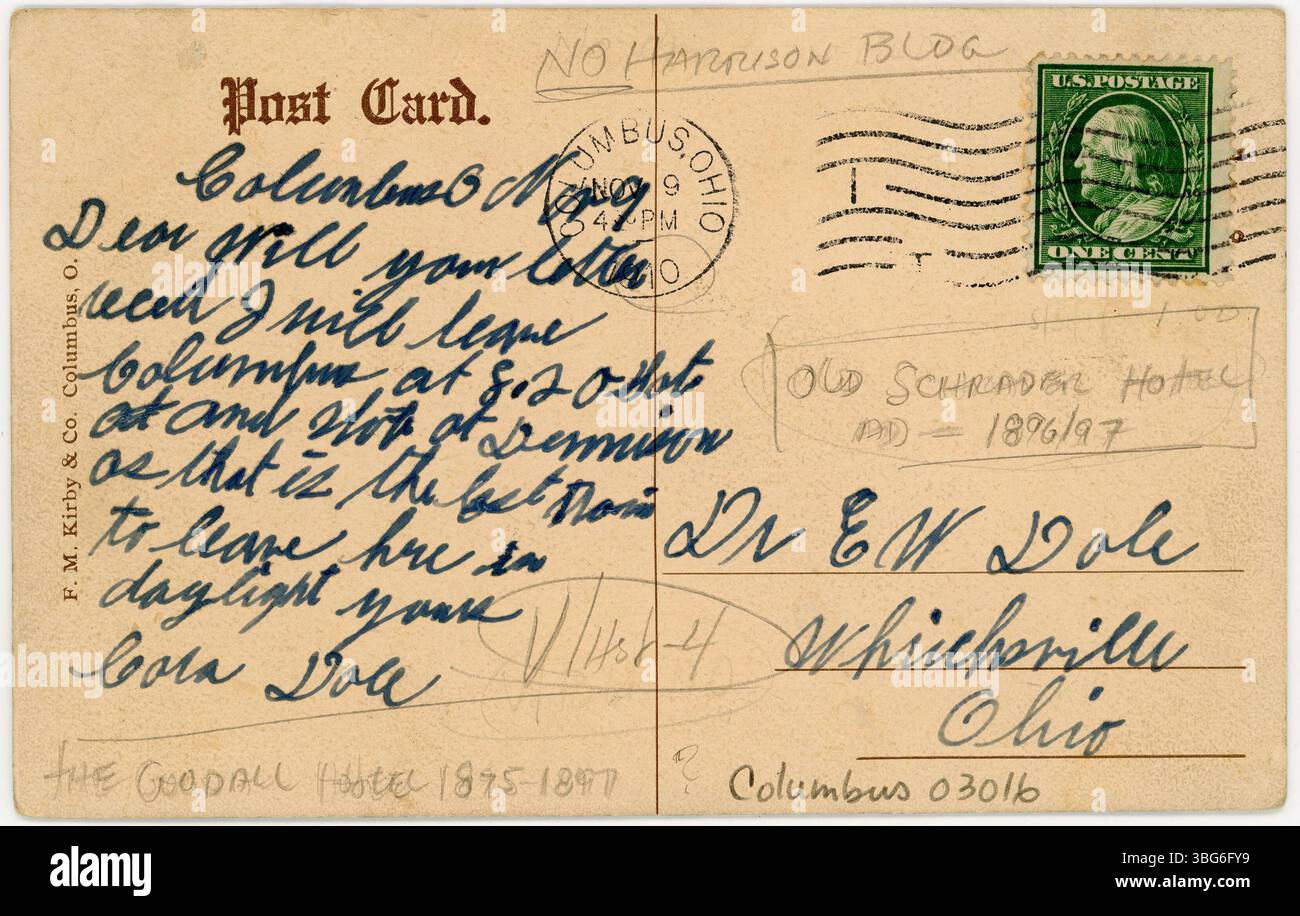 NO HARRISON BLDG
Post Card.
U.S. POSTAGE
ONE CENT
COLUMBUS, OHIO
NOV 9
4 PM
1910
Columbus O Nov 9
Dear Will your letter
recd I will leave
Columbus at 8.20
at and stop at Dennison
as that is the last train
to leave hre in
daylight yours
Cora Dole
F. M. Kirby & Co. Columbus, O.
OLD SCHRADER HOTEL
AD — 1896/97
Dr E W Dole
Ohio
THE GOODALL HOTEL 1875-1897
?
Columbus 03016
alamy
Image ID: 3BG6FY9
www.alamy.com